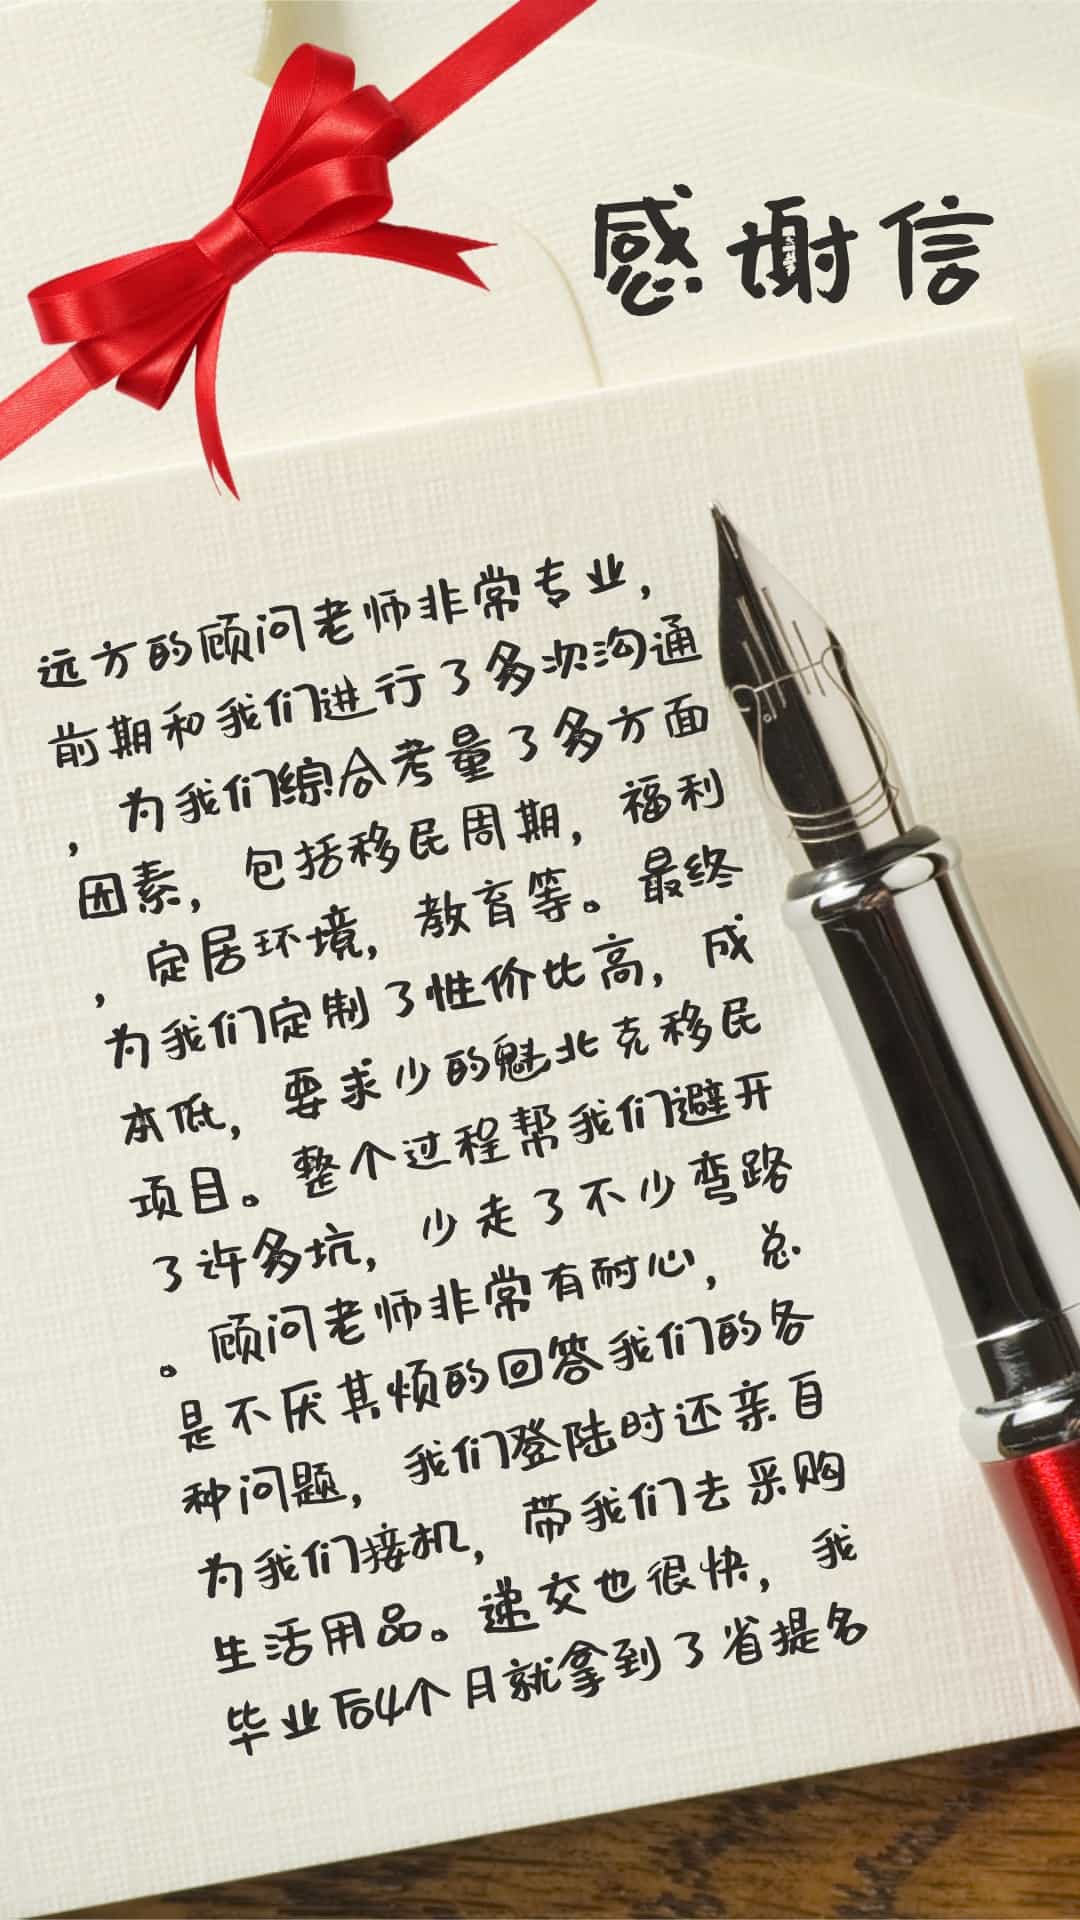 感谢信
远方的顾问老师非常专业，
前期和我们进行了多次沟通
，为我们综合考量了多方面
因素，包括移民周期，福利
，定居环境，教育等。最终
为我们定制了性价比高，成
本低，要求少的魁北克移民
项目。整个过程帮我们避开
了许多坑，少走了不少弯路
。顾问老师非常有耐心，总
是不厌其烦的回答我们的各
种问题，我们登陆时还亲自
为我们接机，带我们去采购
生活用品。递交也很快，我
毕业后4个月就拿到了省提名